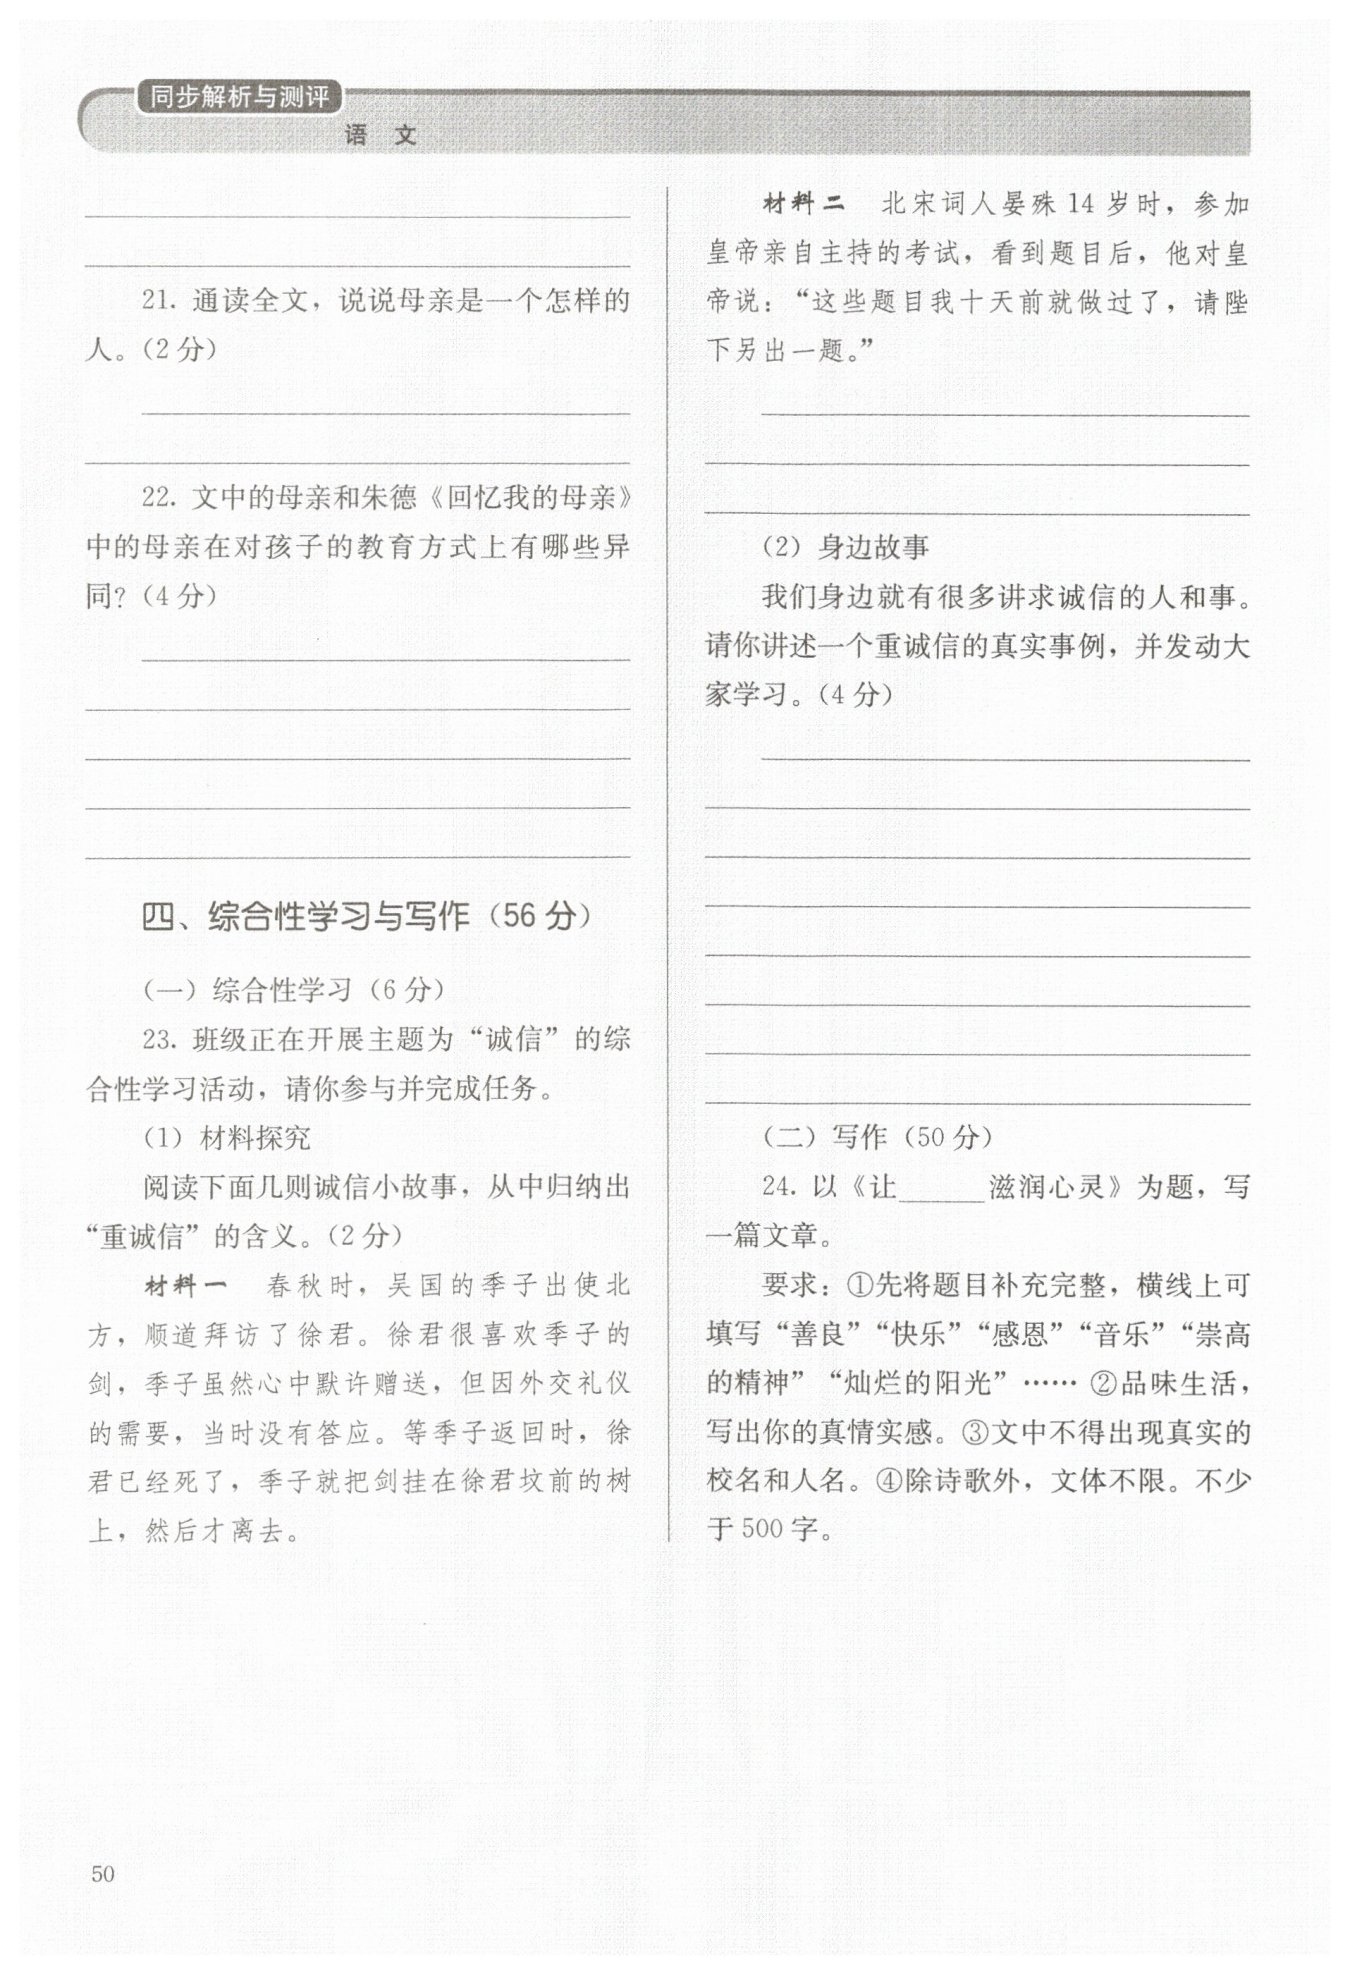 同步解析与测评
语 文
21. 通读全文，说说母亲是一个怎样的
人。（2 分）
22. 文中的母亲和朱德《回忆我的母亲》
中的母亲在对孩子的教育方式上有哪些异
同？（4 分）
四、综合性学习与写作（56 分）
（一）综合性学习（6 分）
23. 班级正在开展主题为“诚信”的综
合性学习活动，请你参与并完成任务。
（1）材料探究
阅读下面几则诚信小故事，从中归纳出
“重诚信”的含义。（2 分）
材料一 春秋时，吴国的季子出使北
方，顺道拜访了徐君。徐君很喜欢季子的
剑，季子虽然心中默许赠送，但因外交礼仪
的需要，当时没有答应。等季子返回时，徐
君已经死了，季子就把剑挂在徐君坟前的树
上，然后才离去。
材料二 北宋词人晏殊 14 岁时，参加
皇帝亲自主持的考试，看到题目后，他对皇
帝说：“这些题目我十天前就做过了，请陛
下另出一题。”
（2）身边故事
我们身边就有很多讲求诚信的人和事。
请你讲述一个重诚信的真实事例，并发动大
家学习。（4 分）
（二）写作（50 分）
24. 以《让______滋润心灵》为题，写
一篇文章。
要求：①先将题目补充完整，横线上可
填写“善良”“快乐”“感恩”“音乐”“崇高
的精神”“灿烂的阳光”…… ②品味生活，
写出你的真情实感。③文中不得出现真实的
校名和人名。④除诗歌外，文体不限。不少
于 500 字。
50